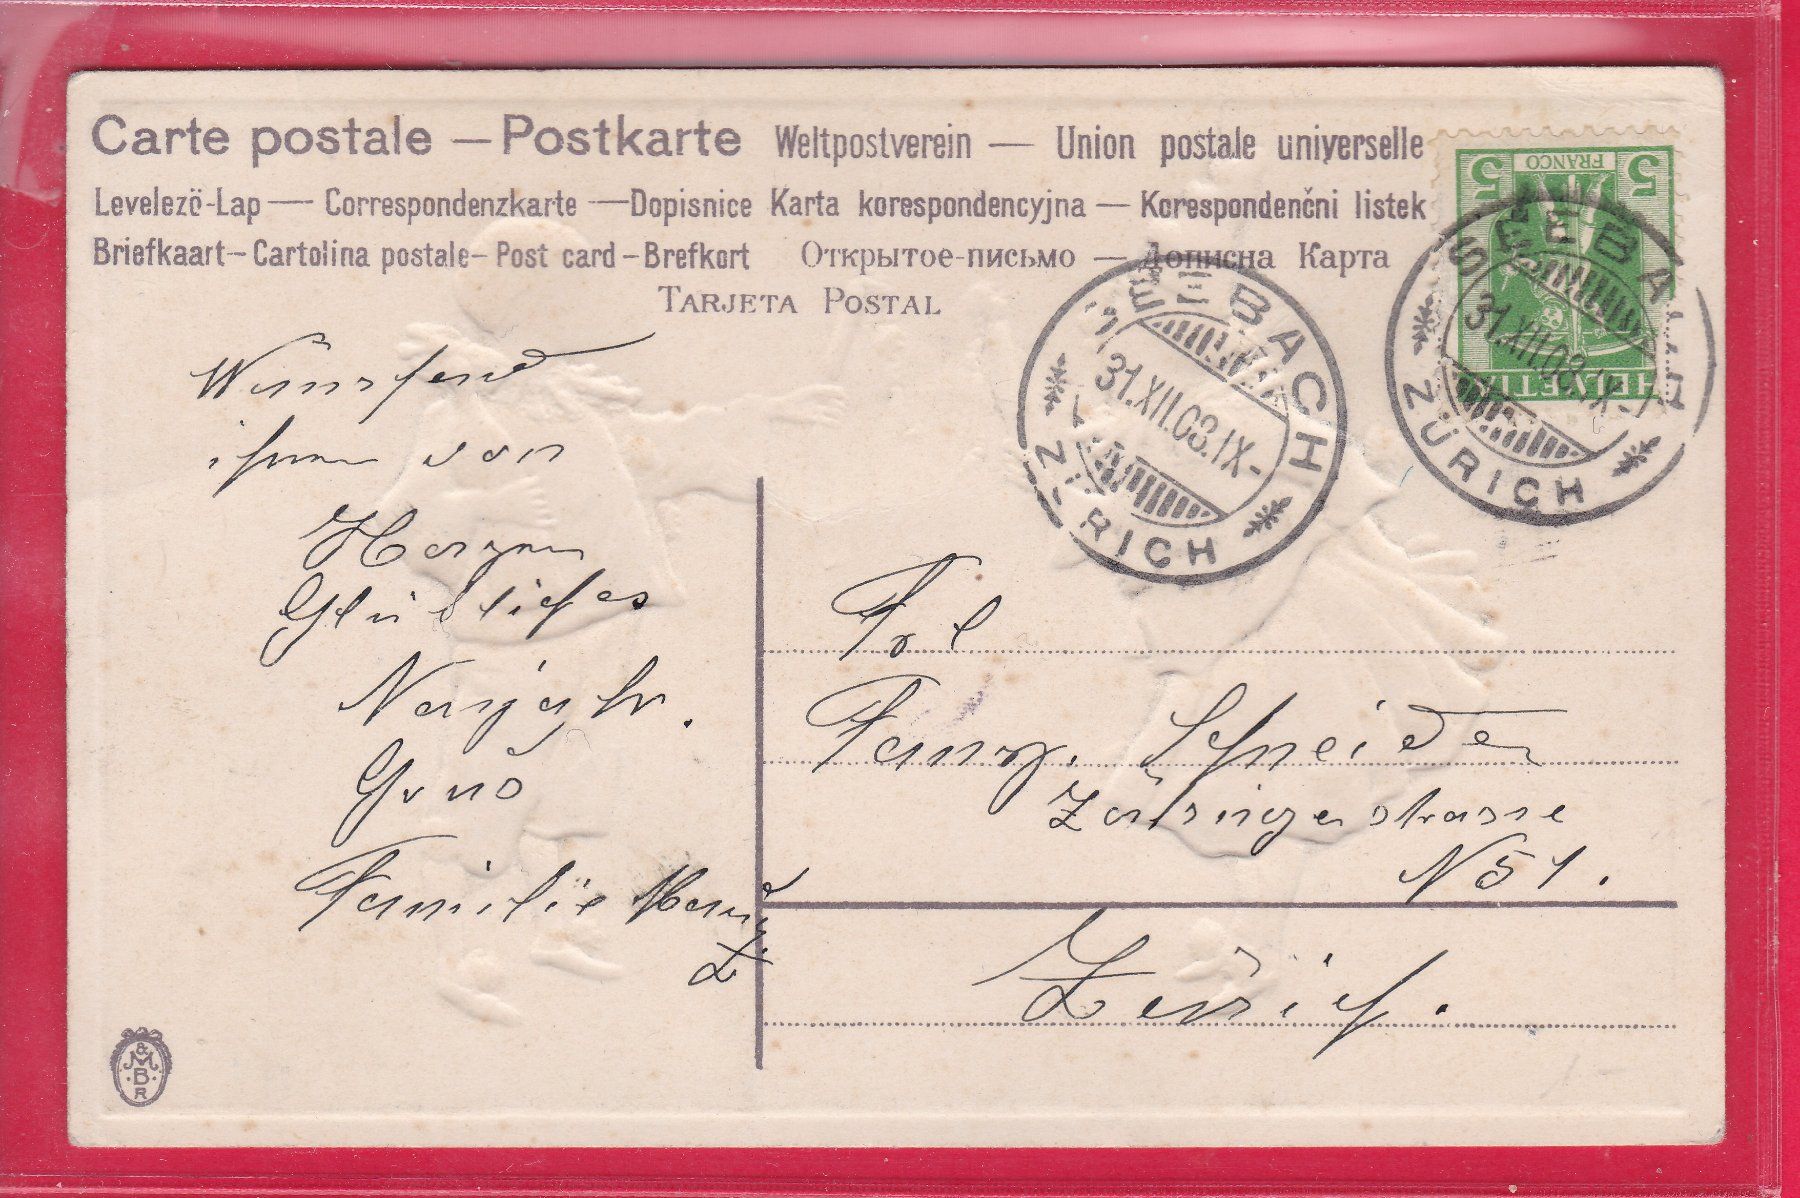 Carte postale – Postkarte Weltpostverein — Union postale universelle
Levelező-Lap — Correspondenzkarte — Dopisnice Karta korespondencyjna — Korespondenčni listek
Briefkaart – Cartolina postale – Post card – Brefkort Открытое-письмо — Дописна Карта
TARJETA POSTAL
5 FRANCO 5
HELVETIA
SEEBACH
31.XII.08.IX-
ZÜRICH
SEEBACH
31.XII.08.IX-
ZÜRICH
Wünschend
ihnen von
Herzen
Glückliches
Neujahr.
Gruss
Familie
Frl
Fanny. Schneider
Zähringerstrasse
N 51.
Zürich.
M & B R